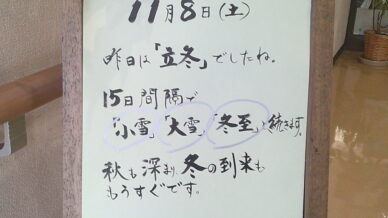 11月8日(土)
昨日は「立冬」でしたね。
15日間隔で
「小雪」「大雪」「冬至」と続きます。
秋も深まり、冬の到来も
もうすぐです。